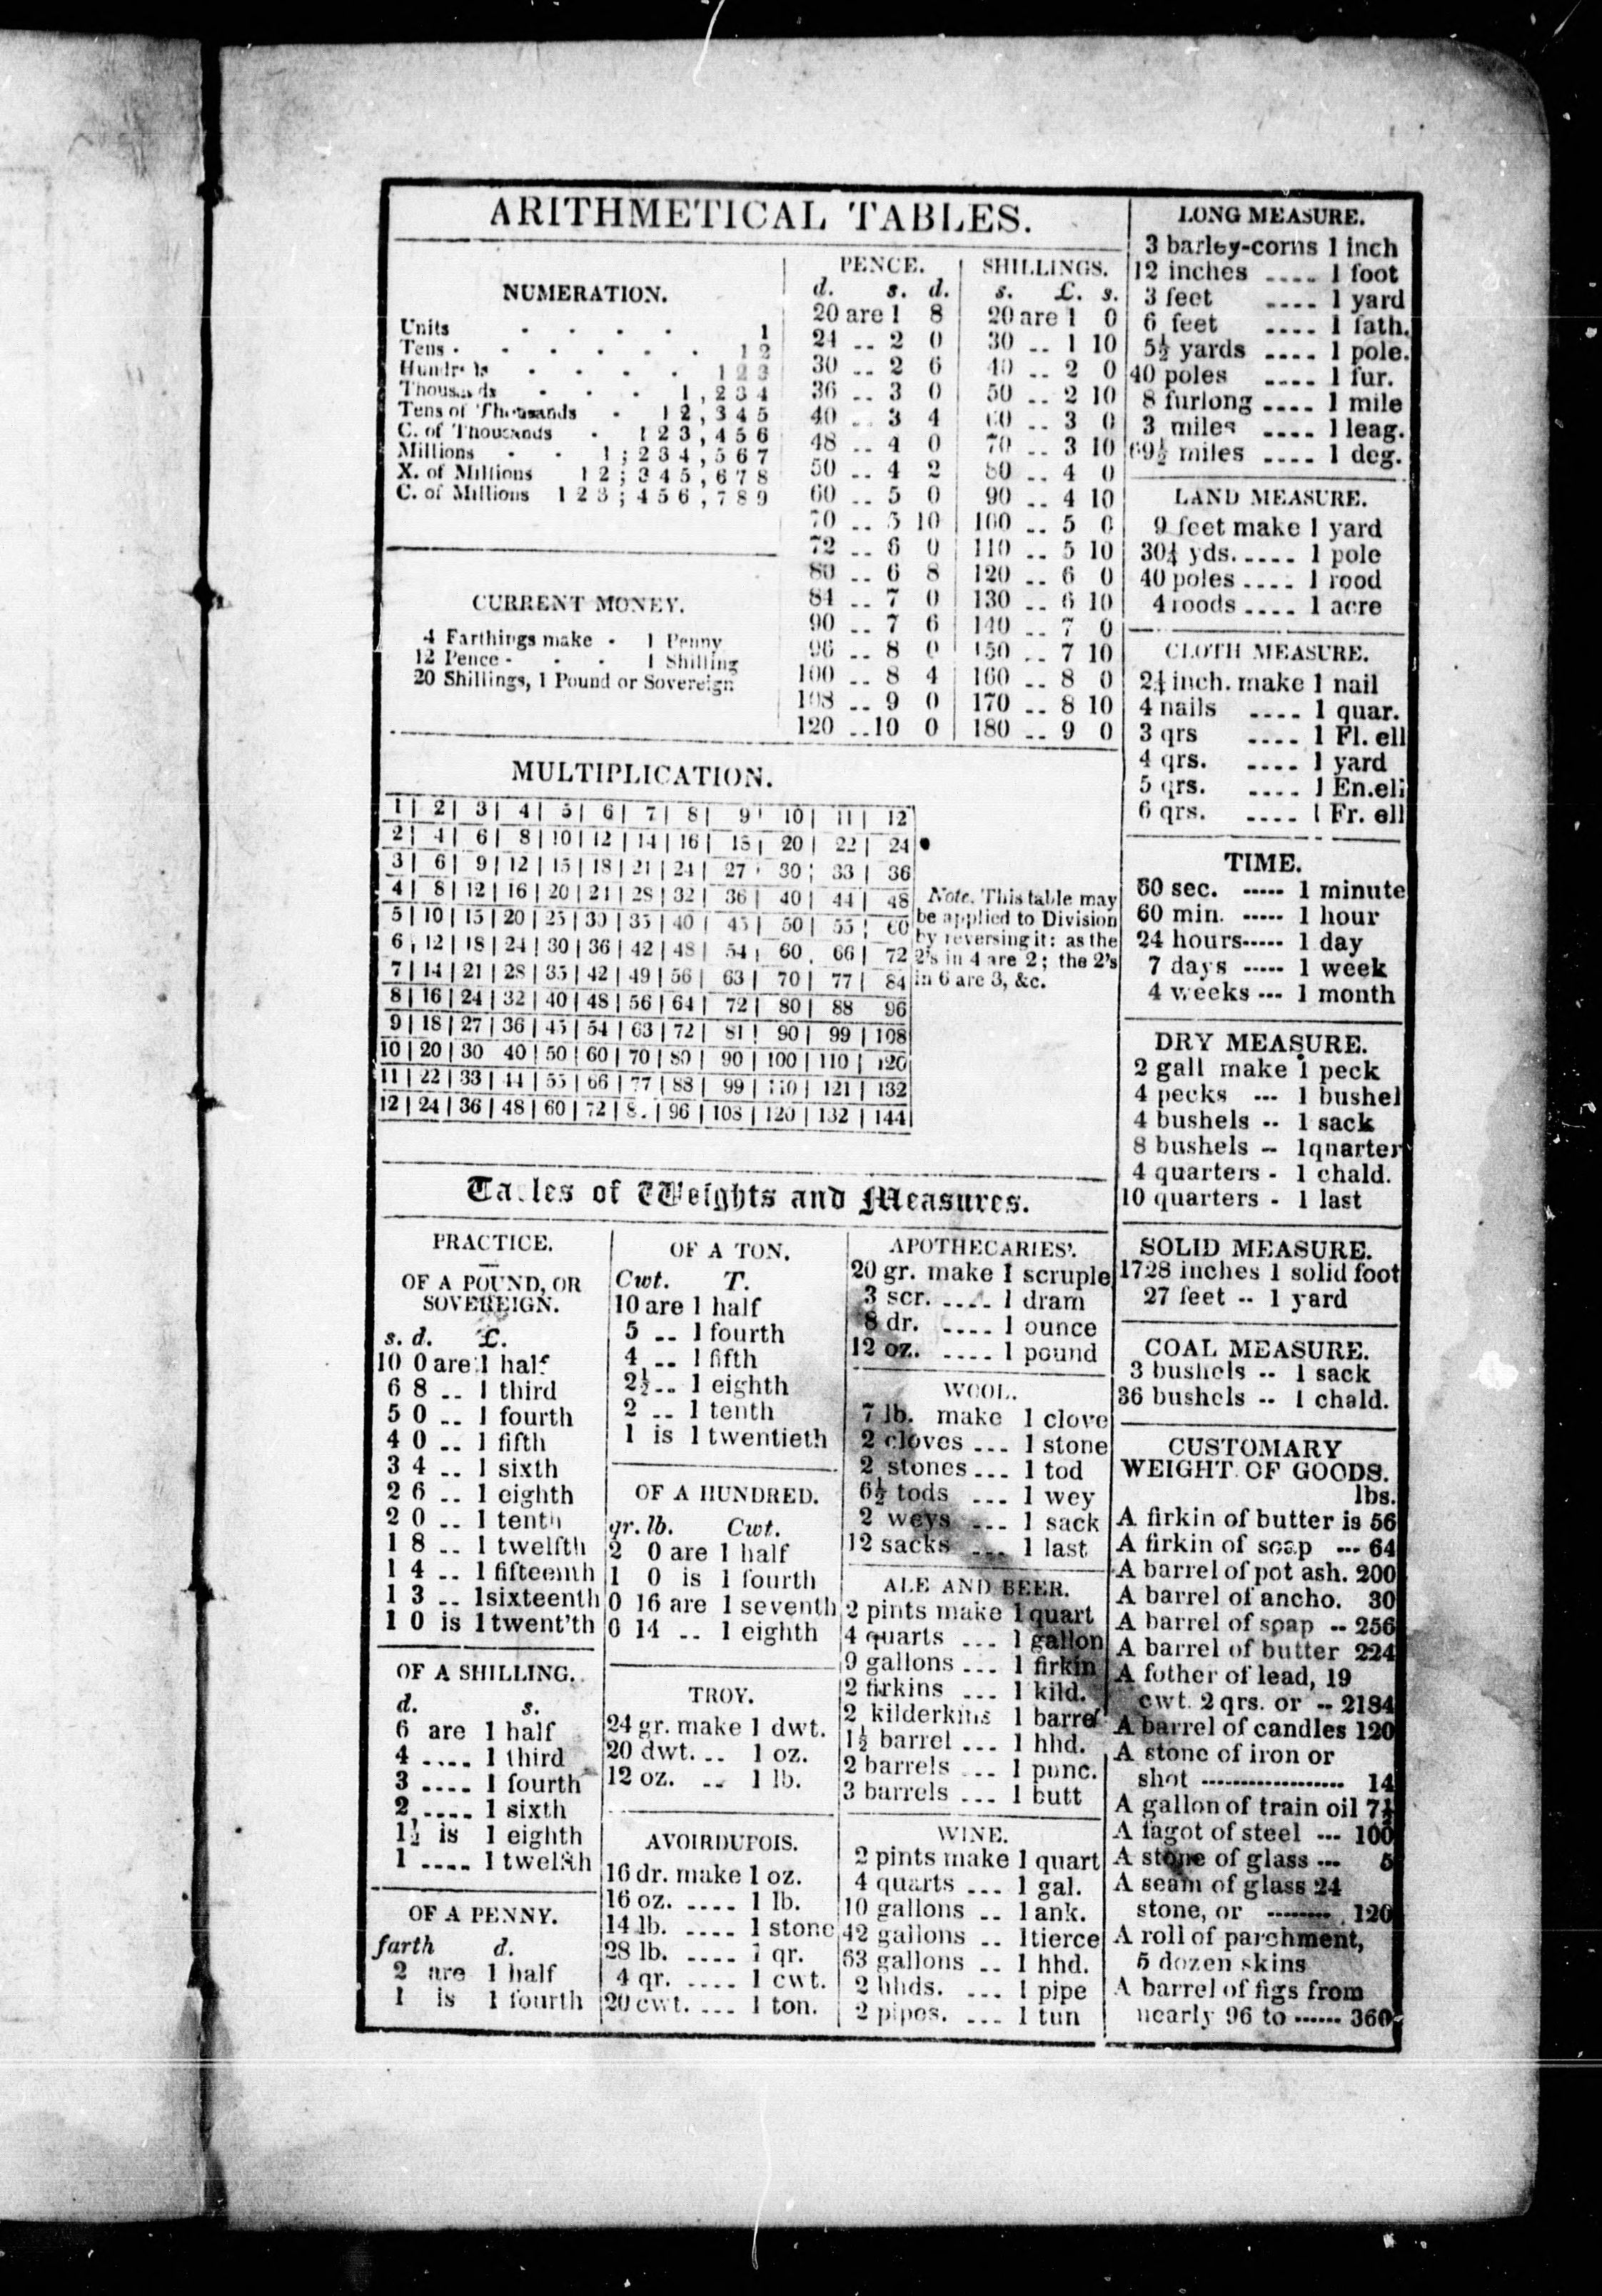 ARITHMETICAL TABLES.
NUMERATION.
Units . . . . 1
Tens . . . . . . 1 2
. . . . 1 2 3
Thousands . . . 1 , 2 3 4
Tens of Thousands . 1 2 , 3 4 5
C. of Thousands . 1 2 3 , 4 5 6
Millions . . 1 ; 2 3 4 , 5 6 7
X. of Millions 1 2 ; 3 4 5 , 6 7 8
C. of Millions 1 2 3 ; 4 5 6 , 7 8 9
CURRENT MONEY.
4 Farthings make - 1 Penny
12 Pence - . . 1 Shilling
20 Shillings, 1 Pound or Sovereign
PENCE.
d. s. d.
20 are 1 8
24 .. 2 0
30 .. 2 6
36 .. 3 0
40 .. 3 4
48 .. 4 0
50 .. 4 2
60 .. 5 0
70 .. 5 10
72 .. 6 0
80 .. 6 8
84 .. 7 0
90 .. 7 6
96 .. 8 0
100 .. 8 4
108 .. 9 0
120 .. 10 0
SHILLINGS.
s. £. s.
20 are 1 0
30 .. 1 10
40 .. 2 0
50 .. 2 10
60 .. 3 0
70 .. 3 10
80 .. 4 0
90 .. 4 10
100 .. 5 0
110 .. 5 10
120 .. 6 0
130 .. 6 10
140 .. 7 0
150 .. 7 10
160 .. 8 0
170 .. 8 10
180 .. 9 0
MULTIPLICATION.
1 | 2 | 3 | 4 | 5 | 6 | 7 | 8 | 9 | 10 | 11 | 12
2 | 4 | 6 | 8 | 10 | 12 | 14 | 16 | 18 | 20 | 22 | 24
3 | 6 | 9 | 12 | 15 | 18 | 21 | 24 | 27 | 30 | 33 | 36
4 | 8 | 12 | 16 | 20 | 24 | 28 | 32 | 36 | 40 | 44 | 48
5 | 10 | 15 | 20 | 25 | 30 | 35 | 40 | 45 | 50 | 55 | 60
6 | 12 | 18 | 24 | 30 | 36 | 42 | 48 | 54 | 60 | 66 | 72
7 | 14 | 21 | 28 | 35 | 42 | 49 | 56 | 63 | 70 | 77 | 84
8 | 16 | 24 | 32 | 40 | 48 | 56 | 64 | 72 | 80 | 88 96
9 | 18 | 27 | 36 | 45 | 54 | 63 | 72 | 81 | 90 | 99 | 108
10 | 20 | 30 40 | 50 | 60 | 70 | 80 | 90 | 100 | 110 | 120
11 | 22 | 33 | 44 | 55 | 66 | 77 | 88 | 99 | 110 | 121 | 132
12 | 24 | 36 | 48 | 60 | 72 | | 96 | 108 | 120 | 132 | 144
Note. This table may
be applied to Division
by reversing it: as the
2's in 4 are 2; the 2's
in 6 are 3, &c.
Tables of Weights and Measures.
PRACTICE.
OF A POUND, OR
SOVEREIGN.
s. d. £.
10 0 are 1 half
6 8 .. 1 third
5 0 .. 1 fourth
4 0 .. 1 fifth
3 4 .. 1 sixth
2 6 .. 1 eighth
2 0 .. 1 tenth
1 8 .. 1 twelfth
1 4 .. 1 fifteenth
1 3 .. 1 sixteenth
1 0 is 1 twent'th
OF A SHILLING.
d. s.
6 are 1 half
4 .... 1 third
3 .... 1 fourth
2 .... 1 sixth
1½ is 1 eighth
1 .... 1 twelfth
OF A PENNY.
farth d.
2 are 1 half
1 is 1 fourth
OF A TON.
Cwt. T.
10 are 1 half
5 .. 1 fourth
4 .. 1 fifth
2½ .. 1 eighth
2 .. 1 tenth
1 is 1 twentieth
OF A HUNDRED.
qr. lb. Cwt.
2 0 are 1 half
1 0 is 1 fourth
0 16 are 1 seventh
0 14 .. 1 eighth
TROY.
24 gr. make 1 dwt.
20 dwt. .. 1 oz.
12 oz. .. 1 lb.
AVOIRDUPOIS.
16 dr. make 1 oz.
16 oz. .... 1 lb.
14 lb. .... 1 stone
28 lb. .... 1 qr.
4 qr. .... 1 cwt.
20 cwt. ... 1 ton.
APOTHECARIES'.
20 gr. make 1 scruple
3 scr. .... 1 dram
8 dr. .... 1 ounce
12 oz. .... 1 pound
WOOL.
7 lb. make 1 clove
2 cloves ... 1 stone
2 stones ... 1 tod
6½ tods ... 1 wey
2 weys ... 1 sack
12 sacks ... 1 last
ALE AND BEER.
2 pints make 1 quart
4 quarts ... 1 gallon
9 gallons ... 1 firkin
2 firkins ... 1 kild.
2 kilderkins 1 barrel
1½ barrel ... 1 hhd.
2 barrels ... 1 punc.
3 barrels ... 1 butt
WINE.
2 pints make 1 quart
4 quarts ... 1 gal.
10 gallons .. 1 ank.
42 gallons .. 1 tierce
63 gallons .. 1 hhd.
2 hhds. ... 1 pipe
2 pipes. ... 1 tun
LONG MEASURE.
3 barley-corns 1 inch
12 inches .... 1 foot
3 feet .... 1 yard
6 feet .... 1 fath.
5½ yards .... 1 pole.
40 poles .... 1 fur.
8 furlong .... 1 mile
3 miles .... 1 leag.
69½ miles .... 1 deg.
LAND MEASURE.
9 feet make 1 yard
30¼ yds. .... 1 pole
40 poles .... 1 rood
4 roods .... 1 acre
CLOTH MEASURE.
2¼ inch. make 1 nail
4 nails .... 1 quar.
3 qrs .... 1 Fl. ell
4 qrs. .... 1 yard
5 qrs. .... 1 En. ell
6 qrs. .... 1 Fr. ell
TIME.
60 sec. ----- 1 minute
60 min. ----- 1 hour
24 hours ----- 1 day
7 days ----- 1 week
4 weeks --- 1 month
DRY MEASURE.
2 gall make 1 peck
4 pecks --- 1 bushel
4 bushels -- 1 sack
8 bushels -- 1 quarter
4 quarters - 1 chald.
10 quarters - 1 last
SOLID MEASURE.
1728 inches 1 solid foot
27 feet -- 1 yard
COAL MEASURE.
3 bushels -- 1 sack
36 bushels -- 1 chald.
CUSTOMARY
WEIGHT OF GOODS.
lbs.
A firkin of butter is 56
A firkin of soap --- 64
A barrel of pot ash. 200
A barrel of ancho. 30
A barrel of soap -- 256
A barrel of butter 224
A fother of lead, 19
cwt. 2 qrs. or -- 2184
A barrel of candles 120
A stone of iron or
shot ------------------ 14
A gallon of train oil 7½
A fagot of steel --- 100
A stone of glass --- 5
A seam of glass 24
stone, or -------- 120
A roll of parchment,
5 dozen skins
A barrel of figs from
nearly 96 to ------ 360